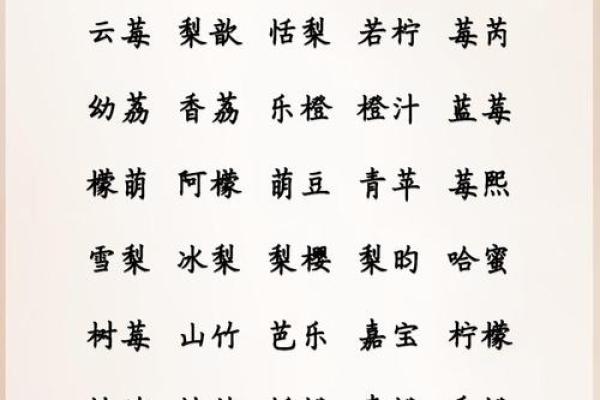 云莓 梨歆 恬梨 若柠 莓芮
幼荔 香荔 乐橙 橙汁 蓝莓
檬萌 阿檬 萌豆 青苹 莓熙
雪梨 冰梨 梨樱 梨昀 哈蜜
树莓 山竹 芭乐 嘉宝 柠檬